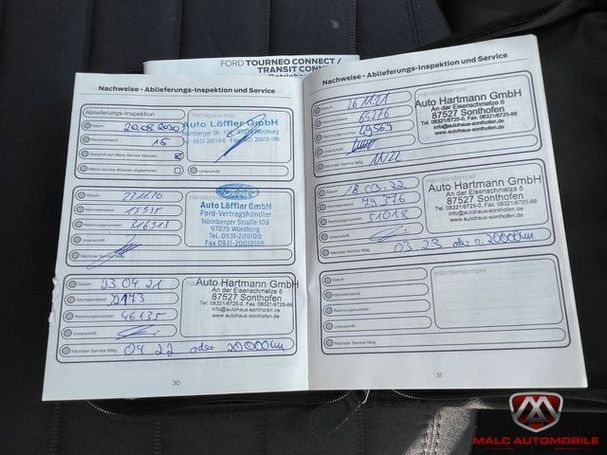 FORD TOURNEO CONNECT /
Nachweise - Ablieferungs-Inspektion und Service
Ablieferungs-Inspektion
Datum
20.08.2020
Kilometerstand
15
Unterschrift
Vertragspartner
Auto Löffler GmbH
Datum
23.11.20
Kilometerstand
15935
Rechnungsnummer
Unterschrift
Nächster Service fällig
Auto Löffler GmbH
Ford-Vertragshändler
Nürnberger Straße 108
97076 Würzburg
Tel. 0931-200100
Fax 0931-20010166
Datum
23 04 21
Kilometerstand
Rechnungsnummer
46135
Unterschrift
Nächster Service fällig
04 22 oder 20000 km
Auto Hartmann GmbH
An der Eisenschmelze 6
87527 Sonthofen
Tel. 08321/6725-0, Fax. 08321/6725-66
www.autohaus-sonthofen.de
30
Nachweise - Ablieferungs-Inspektion und Service
Händlerstempel
Datum
Kilometerstand
65776
Rechnungsnummer
49569
Unterschrift
Nächster Service fällig
11/22
Auto Hartmann GmbH
An der Eisenschmelze 6
87527 Sonthofen
Tel. 08321/6725-0, Fax. 08321/6725-66
www.autohaus-sonthofen.de
Datum
18.03.22
Kilometerstand
79376
Rechnungsnummer
51018
Unterschrift
Nächster Service fällig
03 23 oder n. 20000 km
Auto Hartmann GmbH
An der Eisenschmelze 6
87527 Sonthofen
Tel. 08321/6725-0, Fax. 08321/6725-66
www.autohaus-sonthofen.de
Händlerstempel
Datum
Kilometerstand
Rechnungsnummer
Unterschrift
Nächster Service fällig
31
MALC AUTOMOBILE